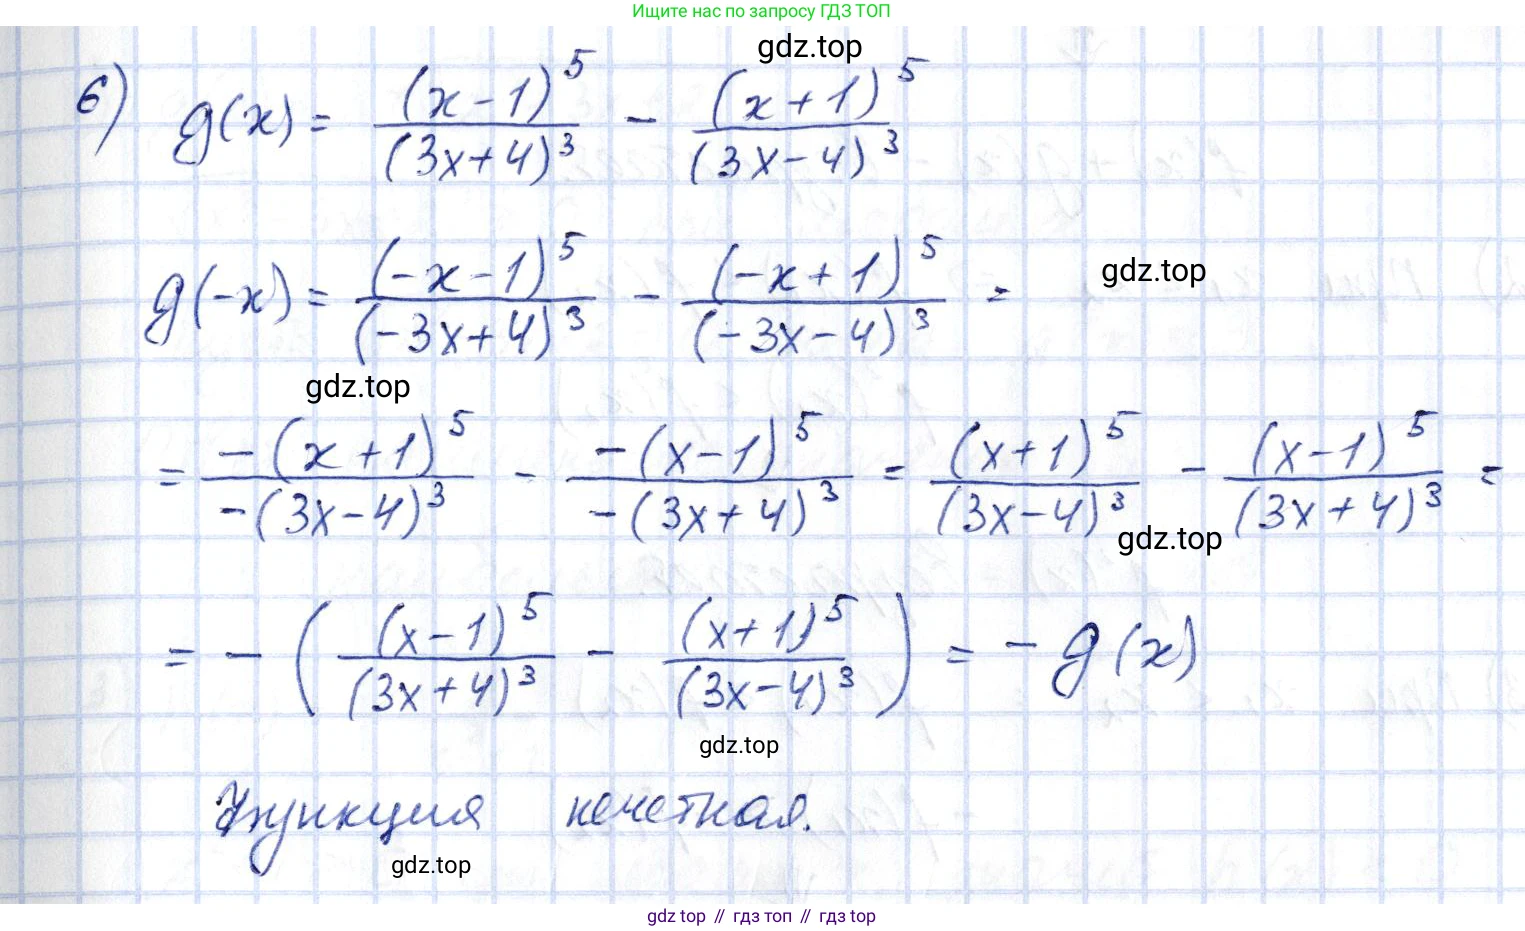 Ищите нас по запросу ГДЗ ТОП
gdz.top
6) g(x) = (x-1)^5/(3x+4)^3 - (x+1)^5/(3x-4)^3
g(-x) = (-x-1)^5/(-3x+4)^3 - (-x+1)^5/(-3x-4)^3 =
gdz.top
gdz.top
= -(x+1)^5/-(3x-4)^3 - -(x-1)^5/-(3x+4)^3 = (x+1)^5/(3x-4)^3 - (x-1)^5/(3x+4)^3 =
gdz.top
= - ((x-1)^5/(3x+4)^3 - (x+1)^5/(3x-4)^3) = - g(x)
gdz.top
Функция нечетная.
gdz.top
gdz top // гдз топ // гдз top